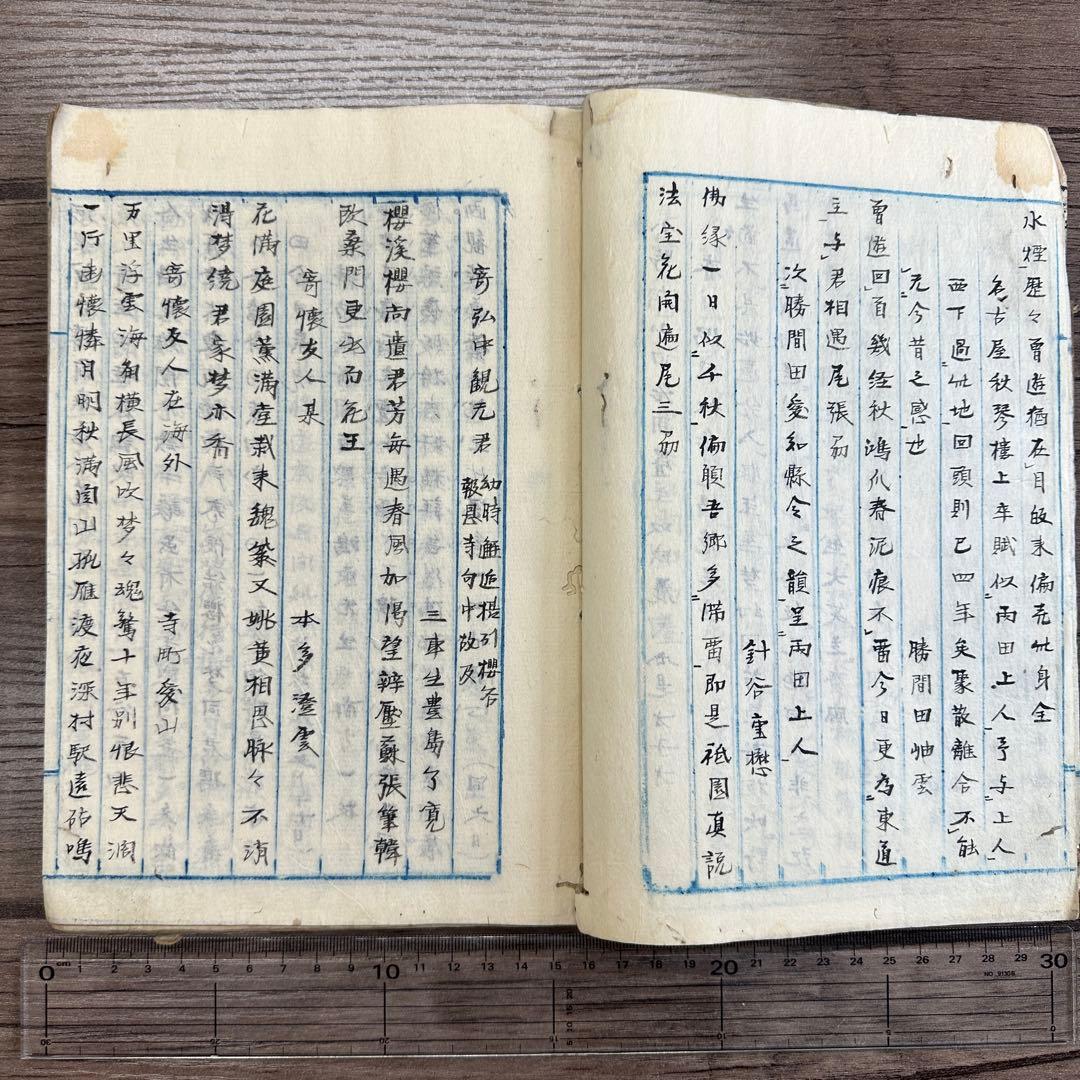 水煙歴々曽遊猶在目故来偏充此身全
名古屋秋琴楼上卒賦似両田上人予与上人
西下過此地回頭則已四年矣聚散離合不能
无今昔之感也 勝間田蚰雲
曽遊回首幾経秋鴻爪春泥痕不留今日更為東道
主与君相遇尾張劦
次勝間田愛知縣令之韻呈両田上人
針谷重懋
佛縁一日似千秋偏願吾郷多滞留即是祇園真説
法宝花開遍尾三劦
寄弘中観元君 幼時邂逅櫻引櫻谷
報恩寺句中故及
三車生豊島了寛
櫻溪櫻尚遺君芳毎遇春風加偈望辨壓蘇張筆韓
欧桑門更出而花王
寄懐友人某 本多澄雲
花満庭園薫満堂栽来魏紫又姚黄相思脉々不消
得梦繞君家梦亦香
寄懐友人在海外 寺町愛山
万里浮雲海角横長風吹梦々魂驚十年別恨悲天涯
一片幽懐憐月明秋満関山孤雁渡夜深村駅遠砧鳴